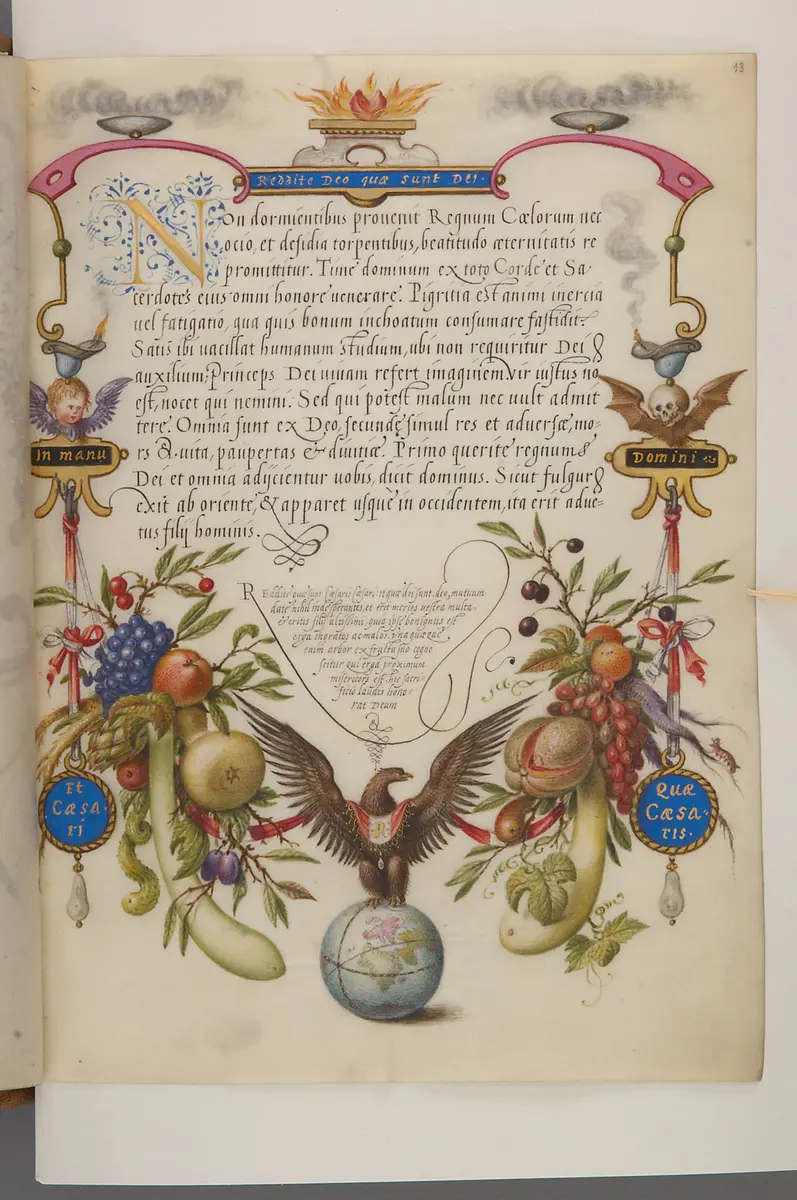 13
Reddite Deo quæ sunt Dei.
Non dormientibus prouenit Regnum Cœlorum nec
ocio, et desidia torpentibus, beatitudo æternitatis re
promittitur. Time dominum ex toto Corde et Sa
cerdotes eius omni honore uenerare. Pigritia est animi inercia
uel fatigatio, qua quis bonum inchoatum consumare fastidit.
Satis ibi uacillat humanum studium, ubi non requiritur Dei
auxilium. Princeps Dei uiuam refert imaginem. Vir iustus no
est, nocet qui nemini. Sed qui potest malum nec uult admit
tere. Omnia sunt ex Deo, secundę simul res et aduersæ, mo-
rs & uita, paupertas & diuitiæ. Primo querite regnum
Dei et omnia adijcientur uobis, dicit dominus. Sicut fulgur
exit ab oriente, & apparet usque in occidentem, ita erit adue-
tus filij hominis.
In manu
Domini
Reddite quæ sunt Cæsaris Cæsari: et quæ dei sunt, deo, mutuum
date nihil inde sperantes, et erit merces vestra multa.
& eritis filij altissimi, quia ipse benignus est
erga ingratos ac malos. Vna quæque
enim arbor ex fructu suo cogno
scitur qui erga proximum
misericors est, hic sacri-
ficio laudis hono-
rat Deum
Et
Cæsa.
ri
Quæ
Cæsa.
ris.
R